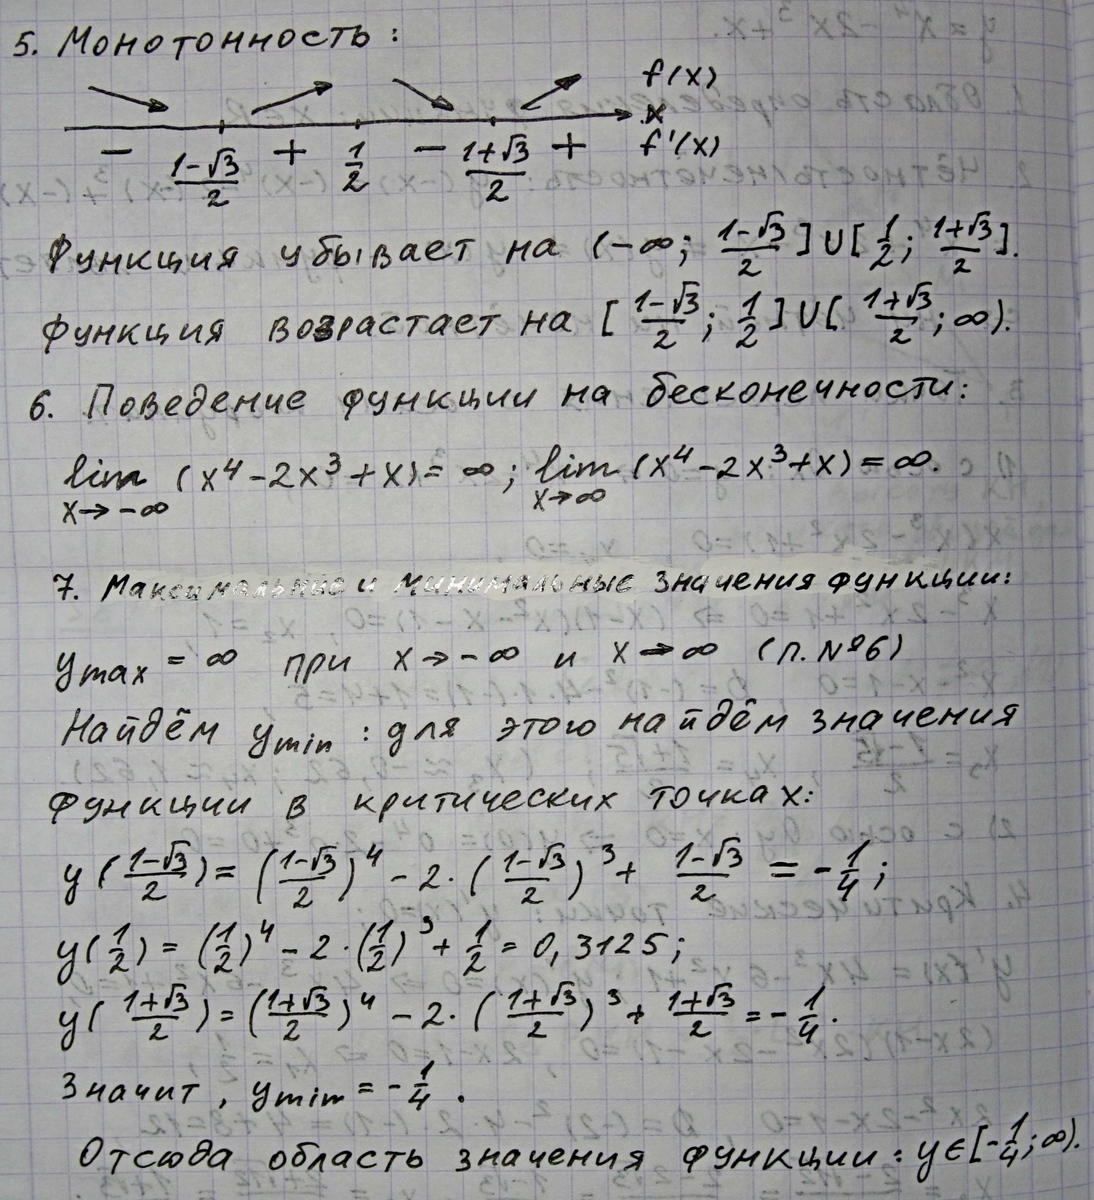 5. Монотонность:
f(x)
x
− (1−√3)/2 + 1/2 − (1+√3)/2 + f'(x)
Функция убывает на (−∞; (1−√3)/2] ∪ [1/2; (1+√3)/2].
Функция возрастает на [(1−√3)/2; 1/2] ∪ [(1+√3)/2; ∞).
6. Поведение функции на бесконечности:
lim x→−∞ (x⁴−2x³+x) = ∞; lim x→∞ (x⁴−2x³+x) = ∞.
7. Максимальные и минимальные значения функции:
ymax = ∞ при x→−∞ и x→∞ (п.№6)
Найдём ymin: для этого найдём значения
функции в критических точках:
y((1−√3)/2) = ((1−√3)/2)⁴ − 2·((1−√3)/2)³ + (1−√3)/2 = −1/4;
y(1/2) = (1/2)⁴ − 2·(1/2)³ + 1/2 = 0,3125;
y((1+√3)/2) = ((1+√3)/2)⁴ − 2·((1+√3)/2)³ + (1+√3)/2 = −1/4.
Значит, ymin = −1/4.
Отсюда область значения функции: y∈[−1/4; ∞).